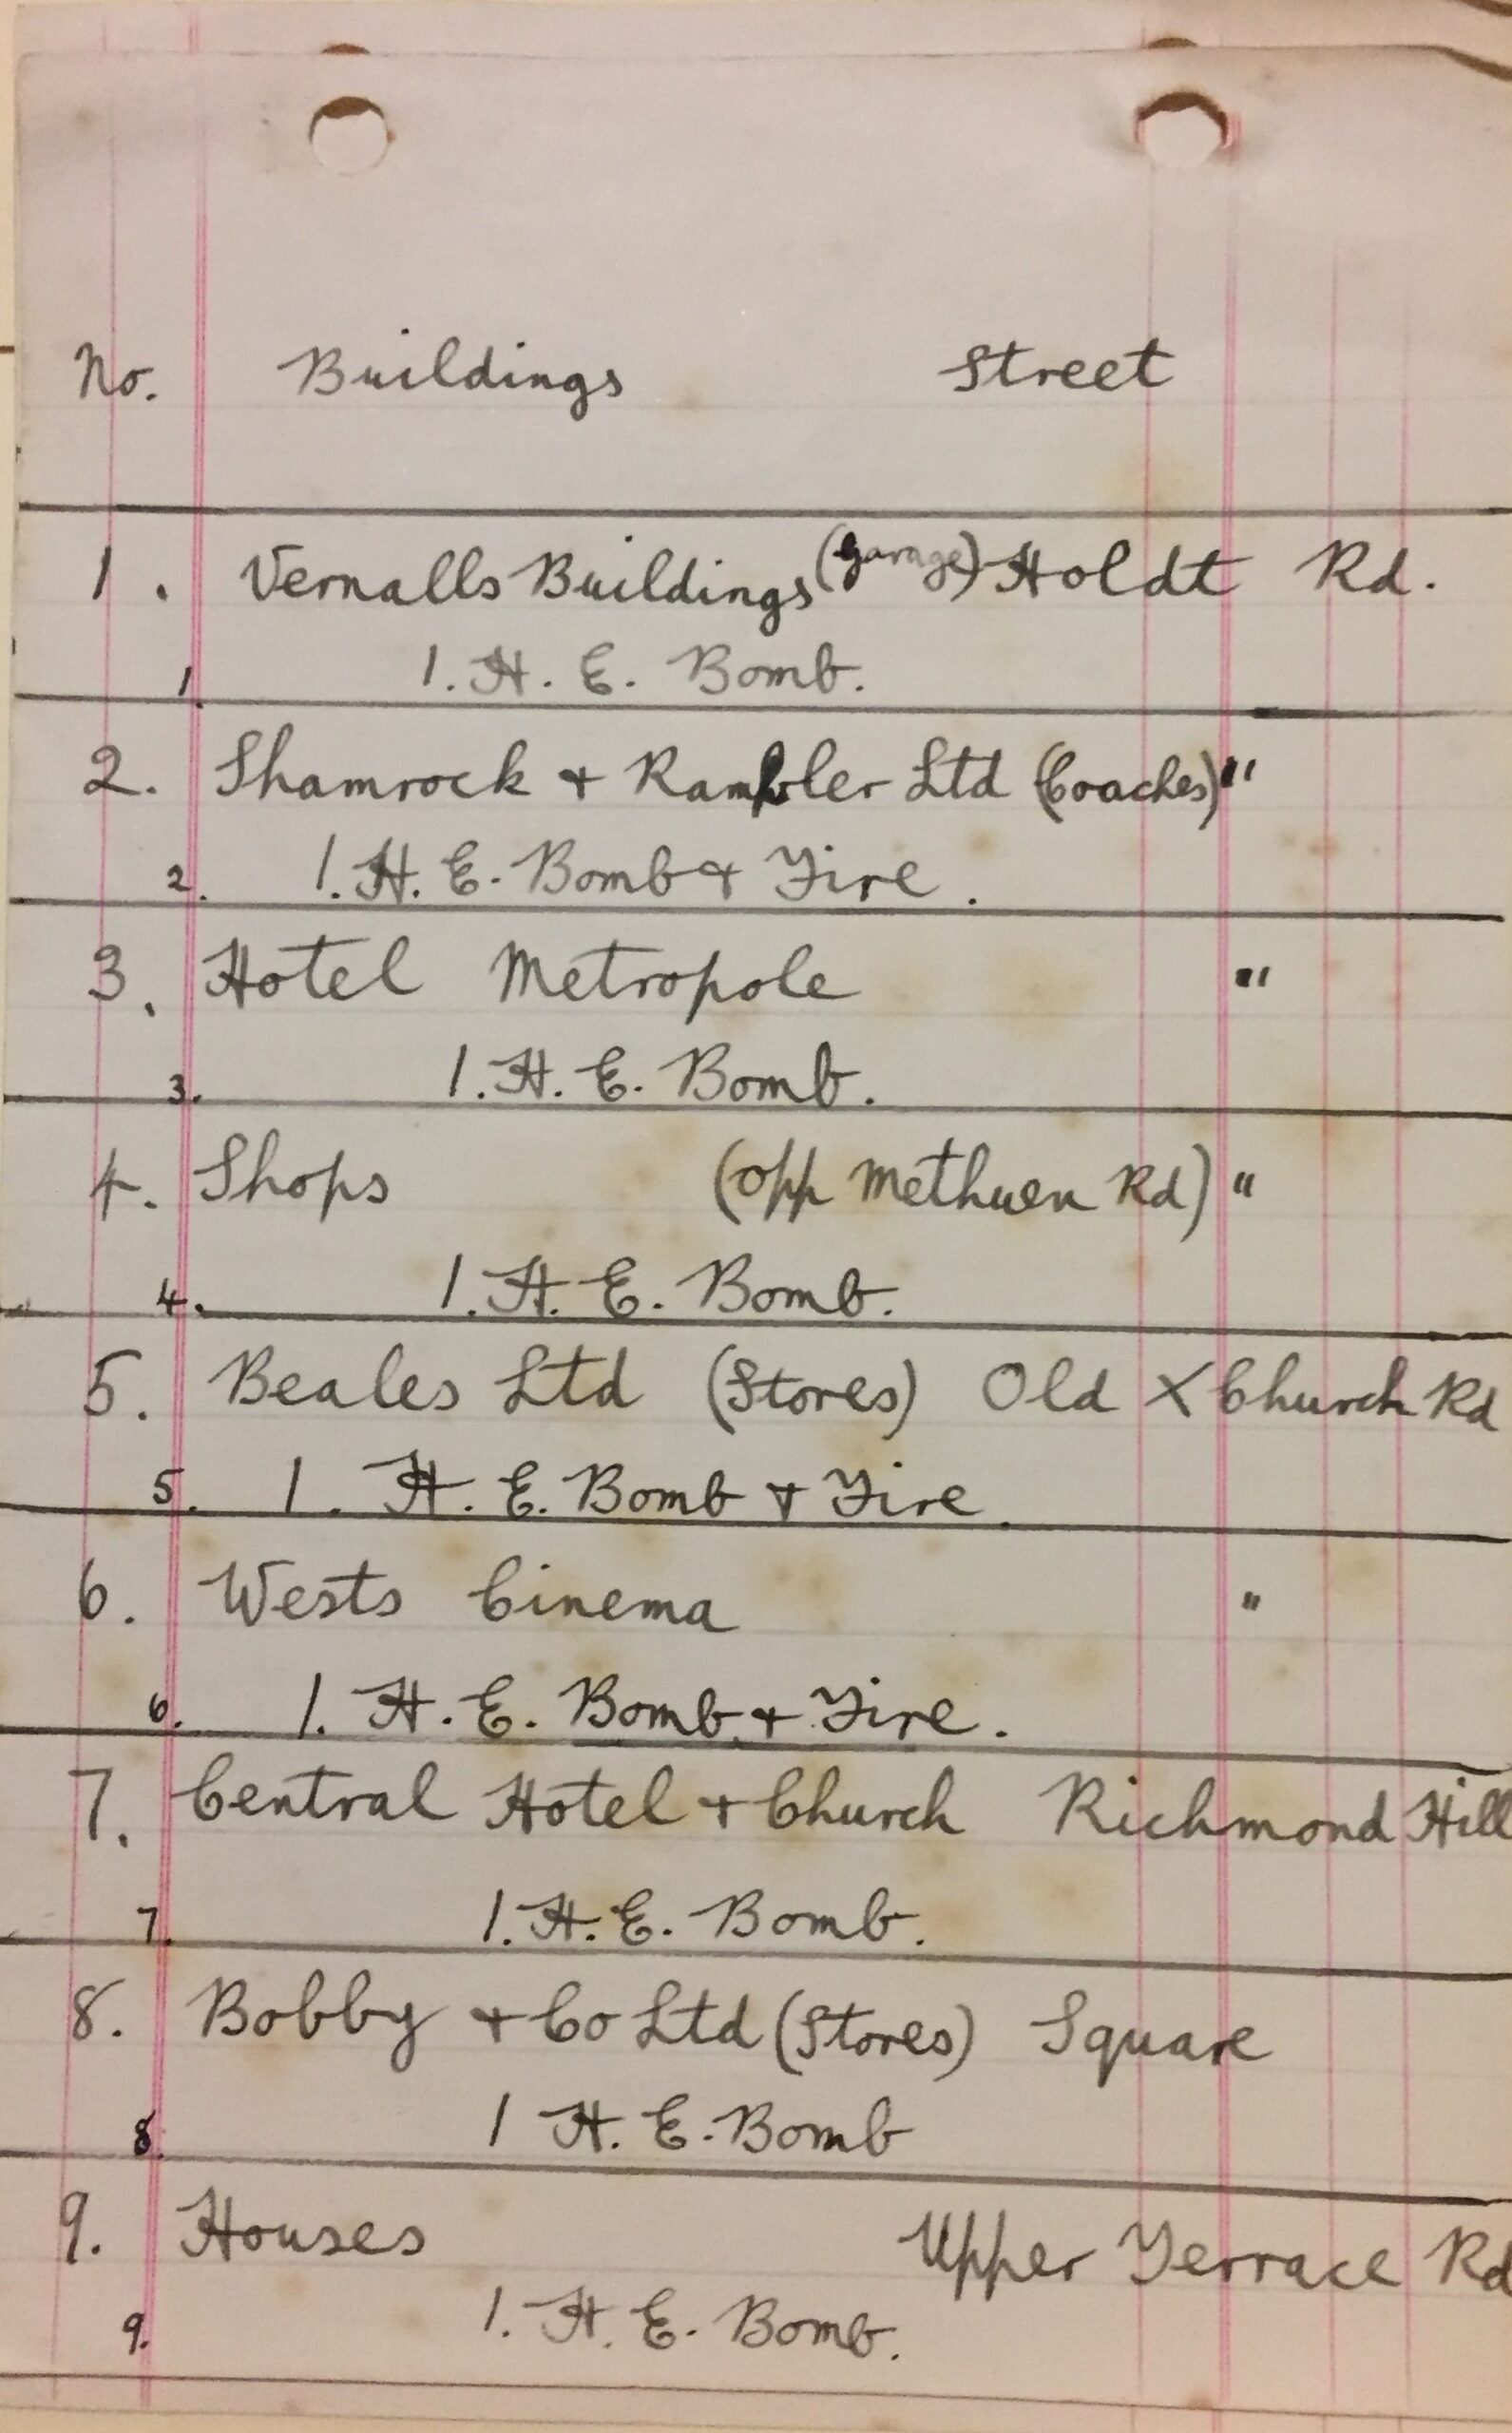 No. Buildings Street
1. Vernalls Buildings (Garage) Holdt Rd.
1. 1. H. E. Bomb.
2. Shamrock + Rambler Ltd (Coaches) "
2. 1. H. E. Bomb + Fire.
3. Hotel Metropole "
3. 1. H. E. Bomb.
4. Shops (Opp Methuen Rd) "
4. 1. H. E. Bomb.
5. Beales Ltd (Stores) Old X Church Rd
5. 1. H. E. Bomb + Fire.
6. Wests Cinema "
6. 1. H. E. Bomb + Fire.
7. Central Hotel + Church Richmond Hill
7. 1. H. E. Bomb.
8. Bobby + Co Ltd (Stores) Square
8. 1 H. E. Bomb
9. Houses Upper Terrace Rd
9. 1. H. E. Bomb.